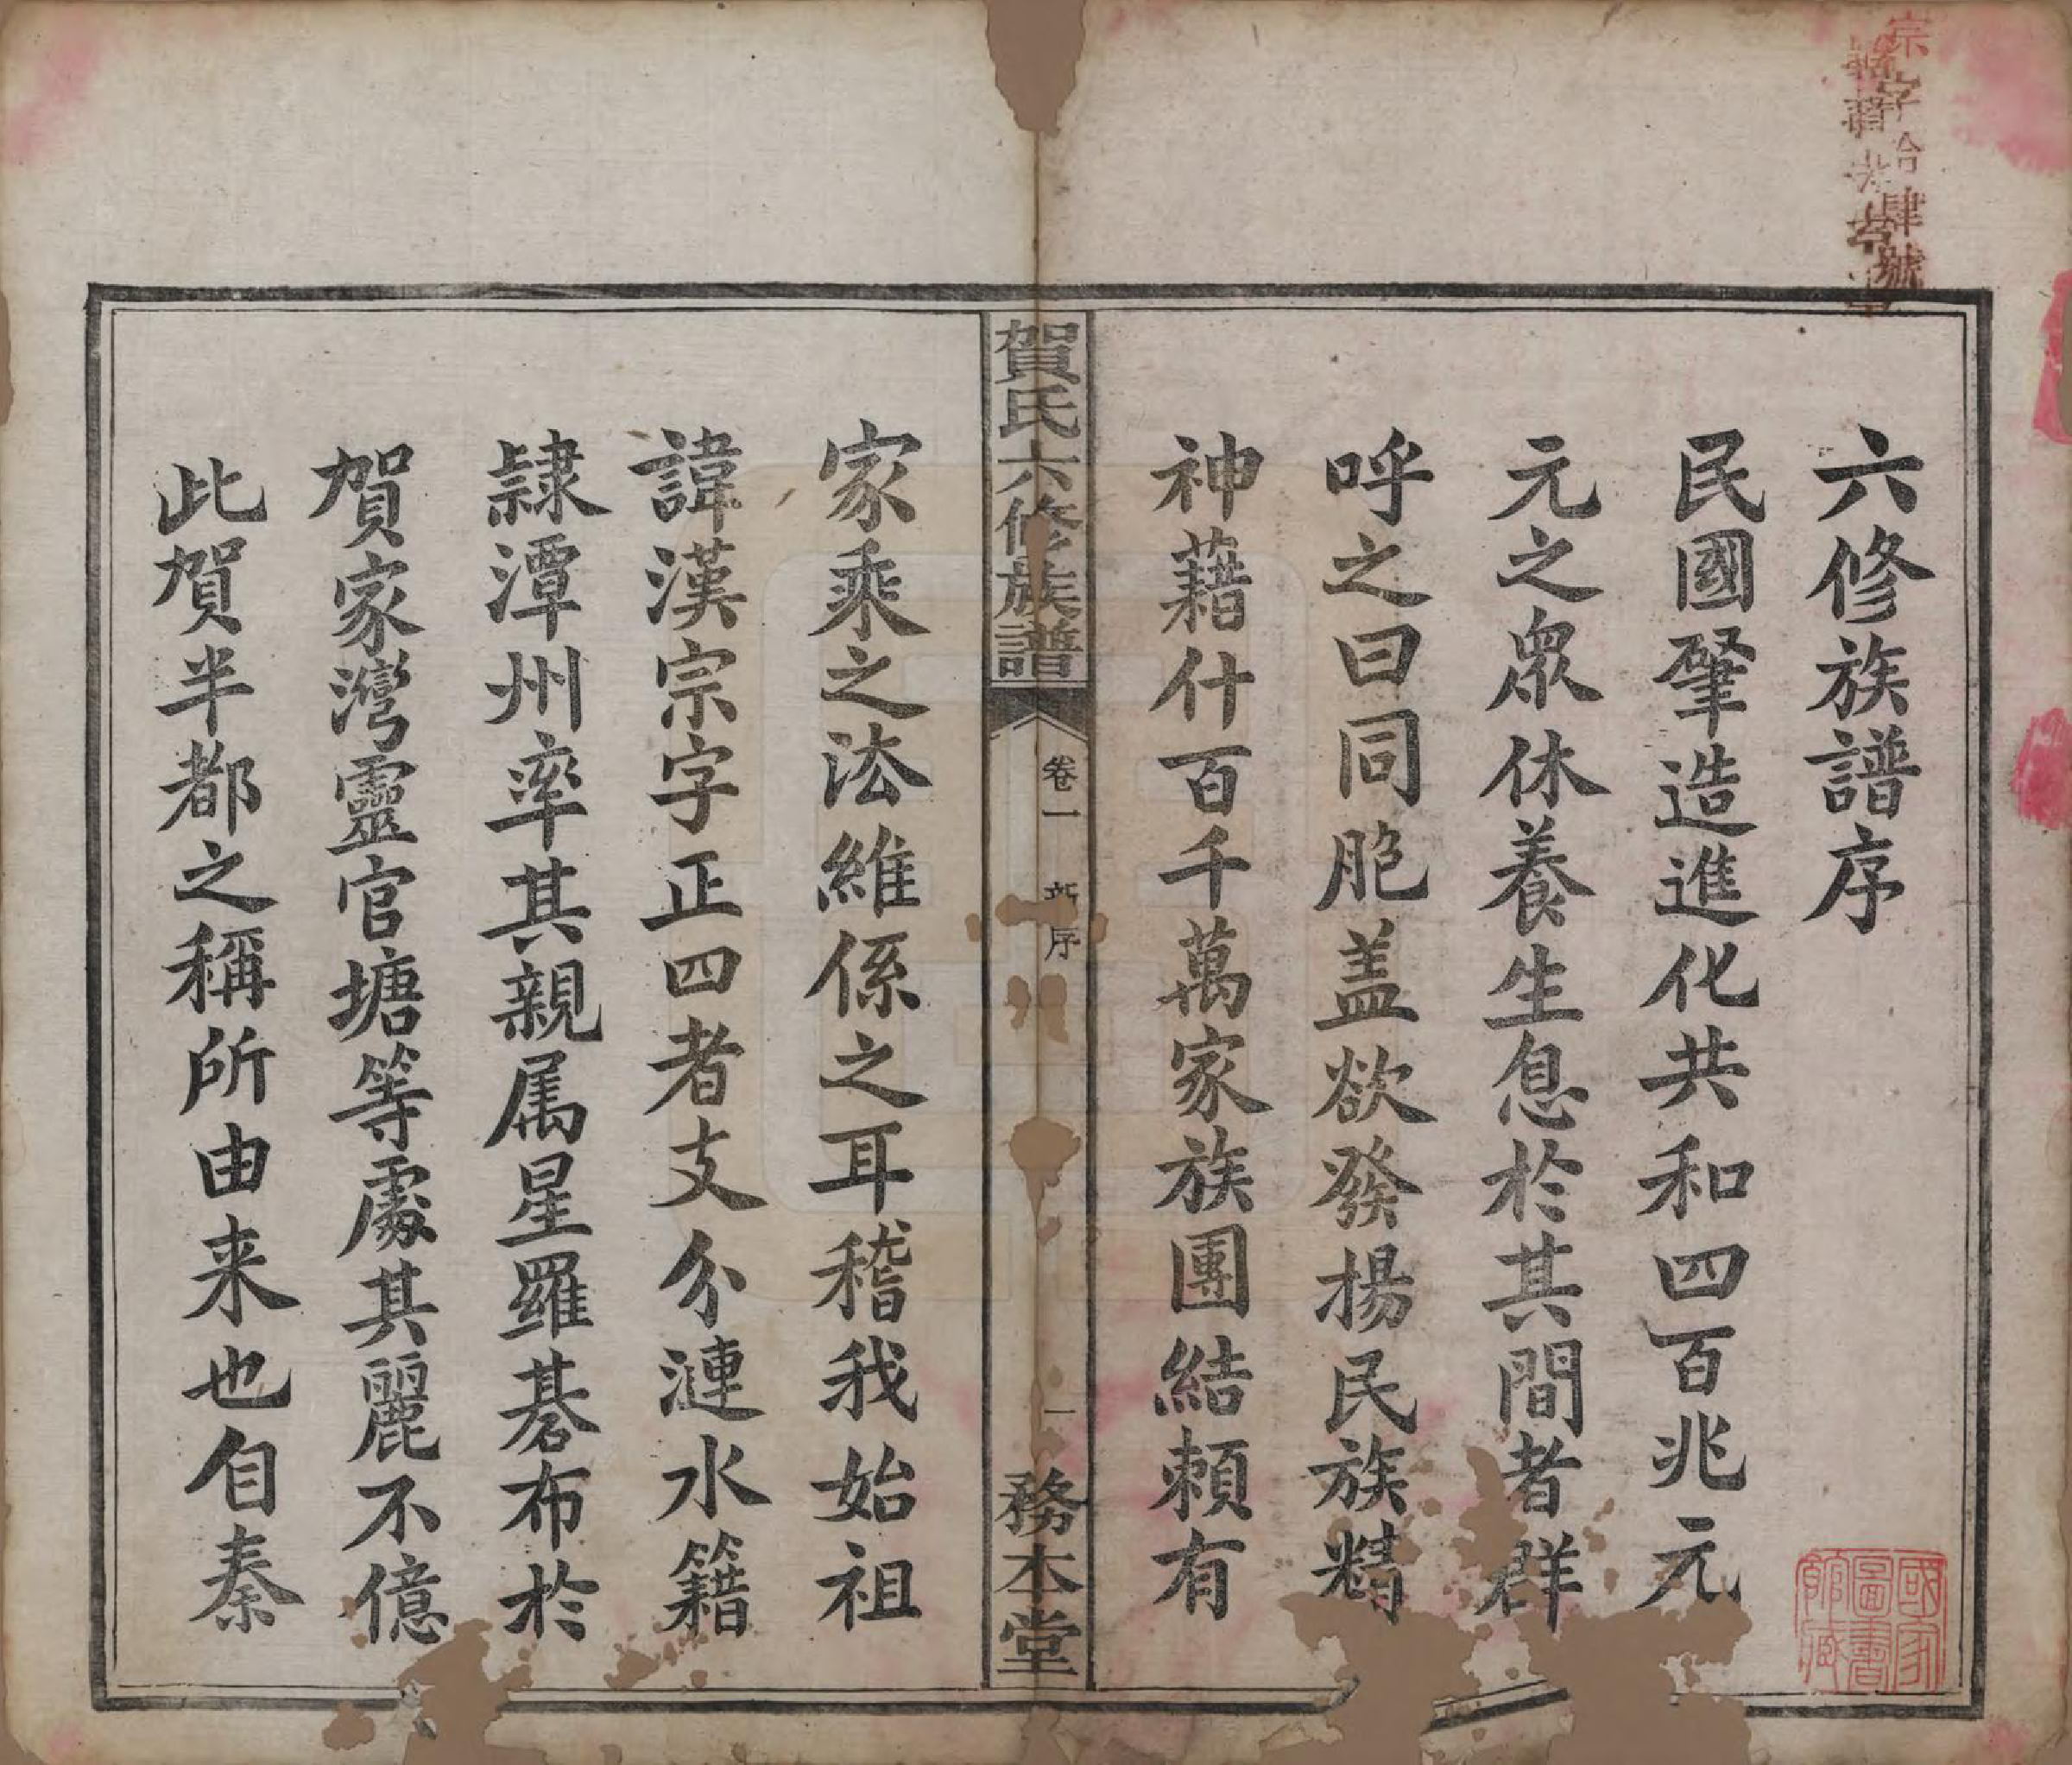 六修族譜序
民國肇造進化共和四百兆元
元之眾休養生息於其間者群
呼之曰同胞盖欲發揚民族精
神藉什百千萬家族團結賴有
賀氏六修族譜
卷一 新序
一
務本堂
家乘之法維係之耳稽我始祖
諱漢宗字正四者支分漣水籍
隸潭州率其親属星羅碁布於
賀家灣靈官塘等處其麗不億
此賀半都之稱所由来也自秦
宗字拾肆號
國家
圖書
館藏